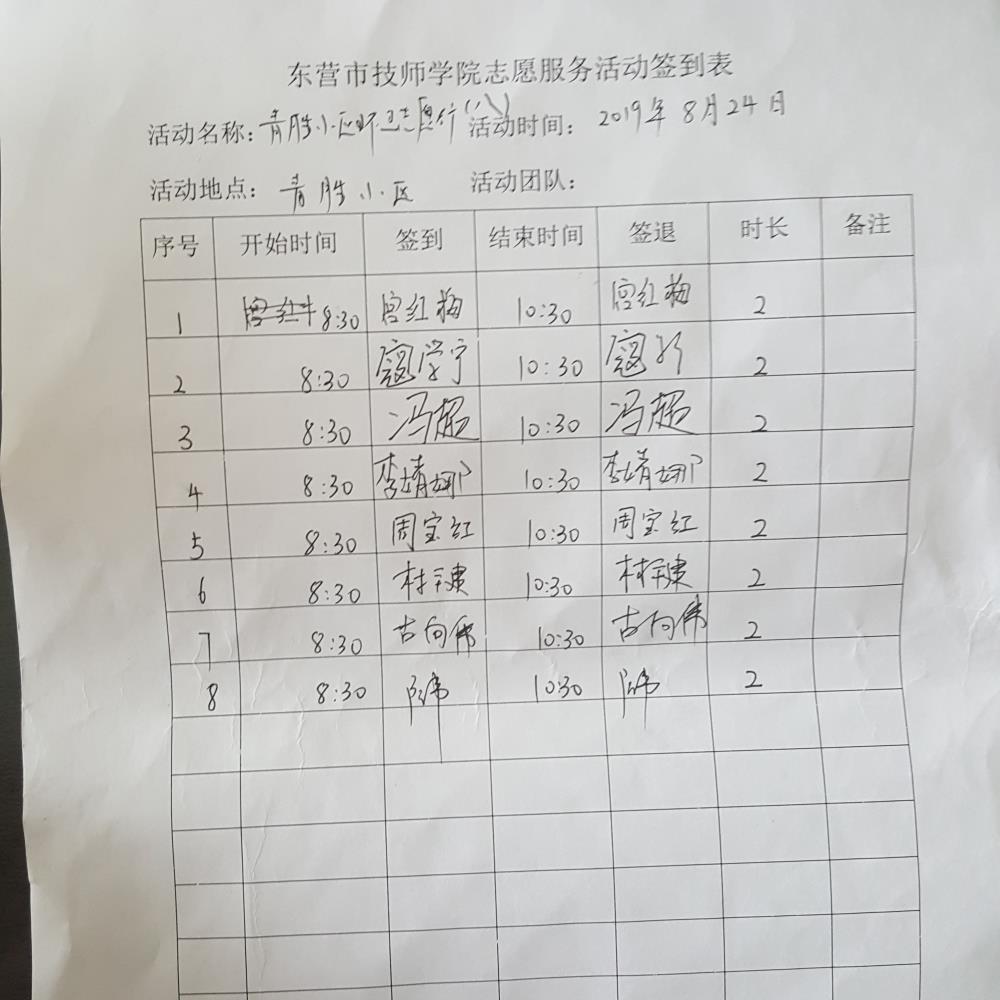 东营市技师学院志愿服务活动签到表
活动名称:青胜小区环卫志愿行(八) 活动时间: 2019年8月24日
活动地点: 青胜小区 活动团队:
序号 开始时间 签到 结束时间 签退 时长 备注
1 8:30 宫红梅 10:30 宫红梅 2
2 8:30 寇学宁 10:30 寇 2
3 8:30 冯超 10:30 冯超 2
4 8:30 李婧娜 10:30 李婧娜 2
5 8:30 周宝红 10:30 周宝红 2
6 8:30 10:30 2
7 8:30 古向伟 10:30 古向伟 2
8 8:30 10:30 2